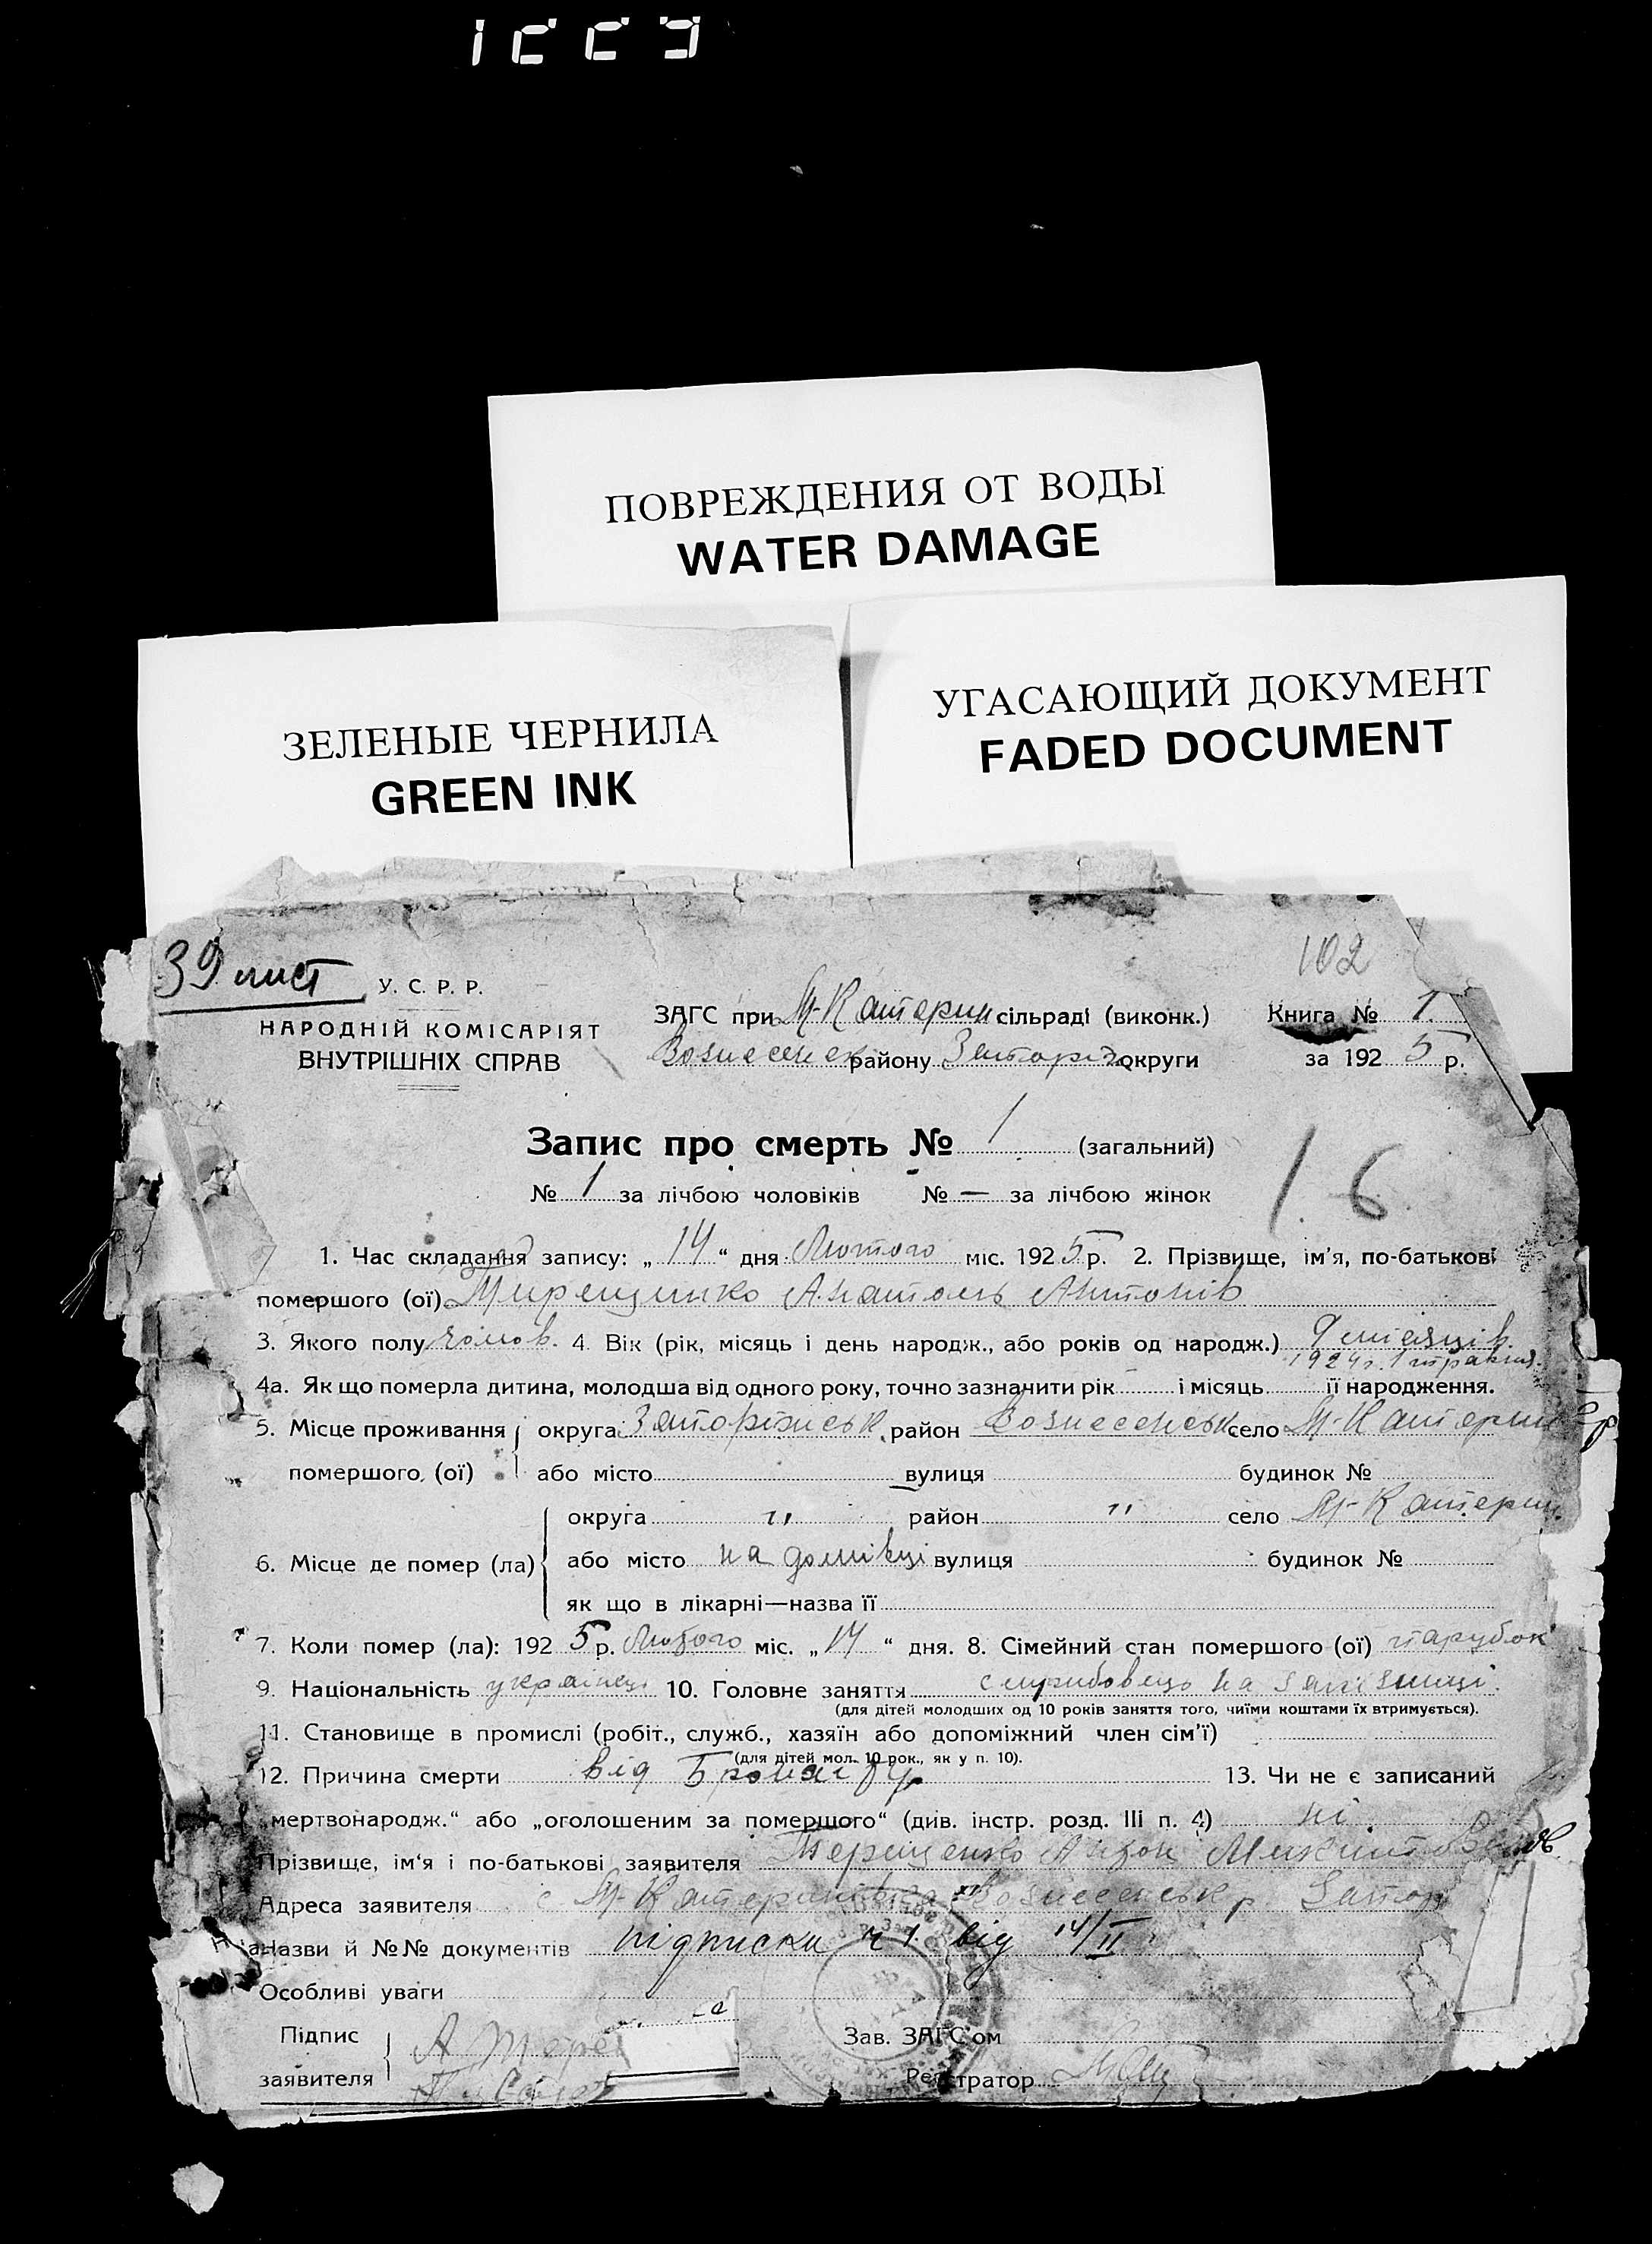 ПОВРЕЖДЕНИЯ ОТ ВОДЫ
WATER DAMAGE
ЗЕЛЕНЫЕ ЧЕРНИЛА
GREEN INK
УГАСАЮЩИЙ ДОКУМЕНТ
FADED DOCUMENT
102
39 лист
У. С. Р. Р.
НАРОДНІЙ КОМІСАРІЯТ
ВНУТРІШНІХ СПРАВ
ЗАГС при М-Катерин сільраді (виконк.) Книга № 1.
Вознесенск району Запоріз округи за 1925 р.
Запис про смерть № 1 (загальний)
№ 1 за лічбою чоловіків № — за лічбою жінок
1. 6
1. Час складання запису: „14“ дня Лютого міс. 1925 р. 2. Прізвище, ім'я, по-батькові
помершого (ої) Анатоль Антонів
3. Якого полу чолов. 4. Вік (рік, місяць і день народж., або років од народж.) 9 місяців
1924 р. 1 травня.
4а. Як що померла дитина, молодша від одного року, точно зазначити рік і місяць її народження.
5. Місце проживання округа Запоріжськ. район Вознесенськ село М-Катеринівр
помершого (ої) або місто вулиця будинок №
округа " район " село М-Катерин.
6. Місце де помер (ла) або місто на домівці вулиця будинок №
як що в лікарні—назва її
7. Коли помер (ла): 1925 р. Лютого міс. „14“ дня. 8. Сімейний стан помершого (ої) парубок
9. Національність українець 10. Головне заняття службовець на залізниці.
(для дітей молодших од 10 років заняття того, чиїми коштами їх втримується).
11. Становище в промислі (робіт., служб., хазяїн або допоміжний член сім'ї)
(для дітей мол. 10 рок., як у п. 10).
12. Причина смерти від 13. Чи не є записаний
„мертвонародж.“ або „оголошеним за помершого“ (див. інстр. розд. III п. 4) ні
Прізвище, ім'я і по-батькові заявителя Терещенко Антон
Адреса заявителя с М-Катеринівка Вознесенськ р Запор
Назви й №№ документів підписка ч 1. від 14/II
Особливі уваги
Підпис Зав. ЗАГС'ом
А Тере
заявителя Реєстратор